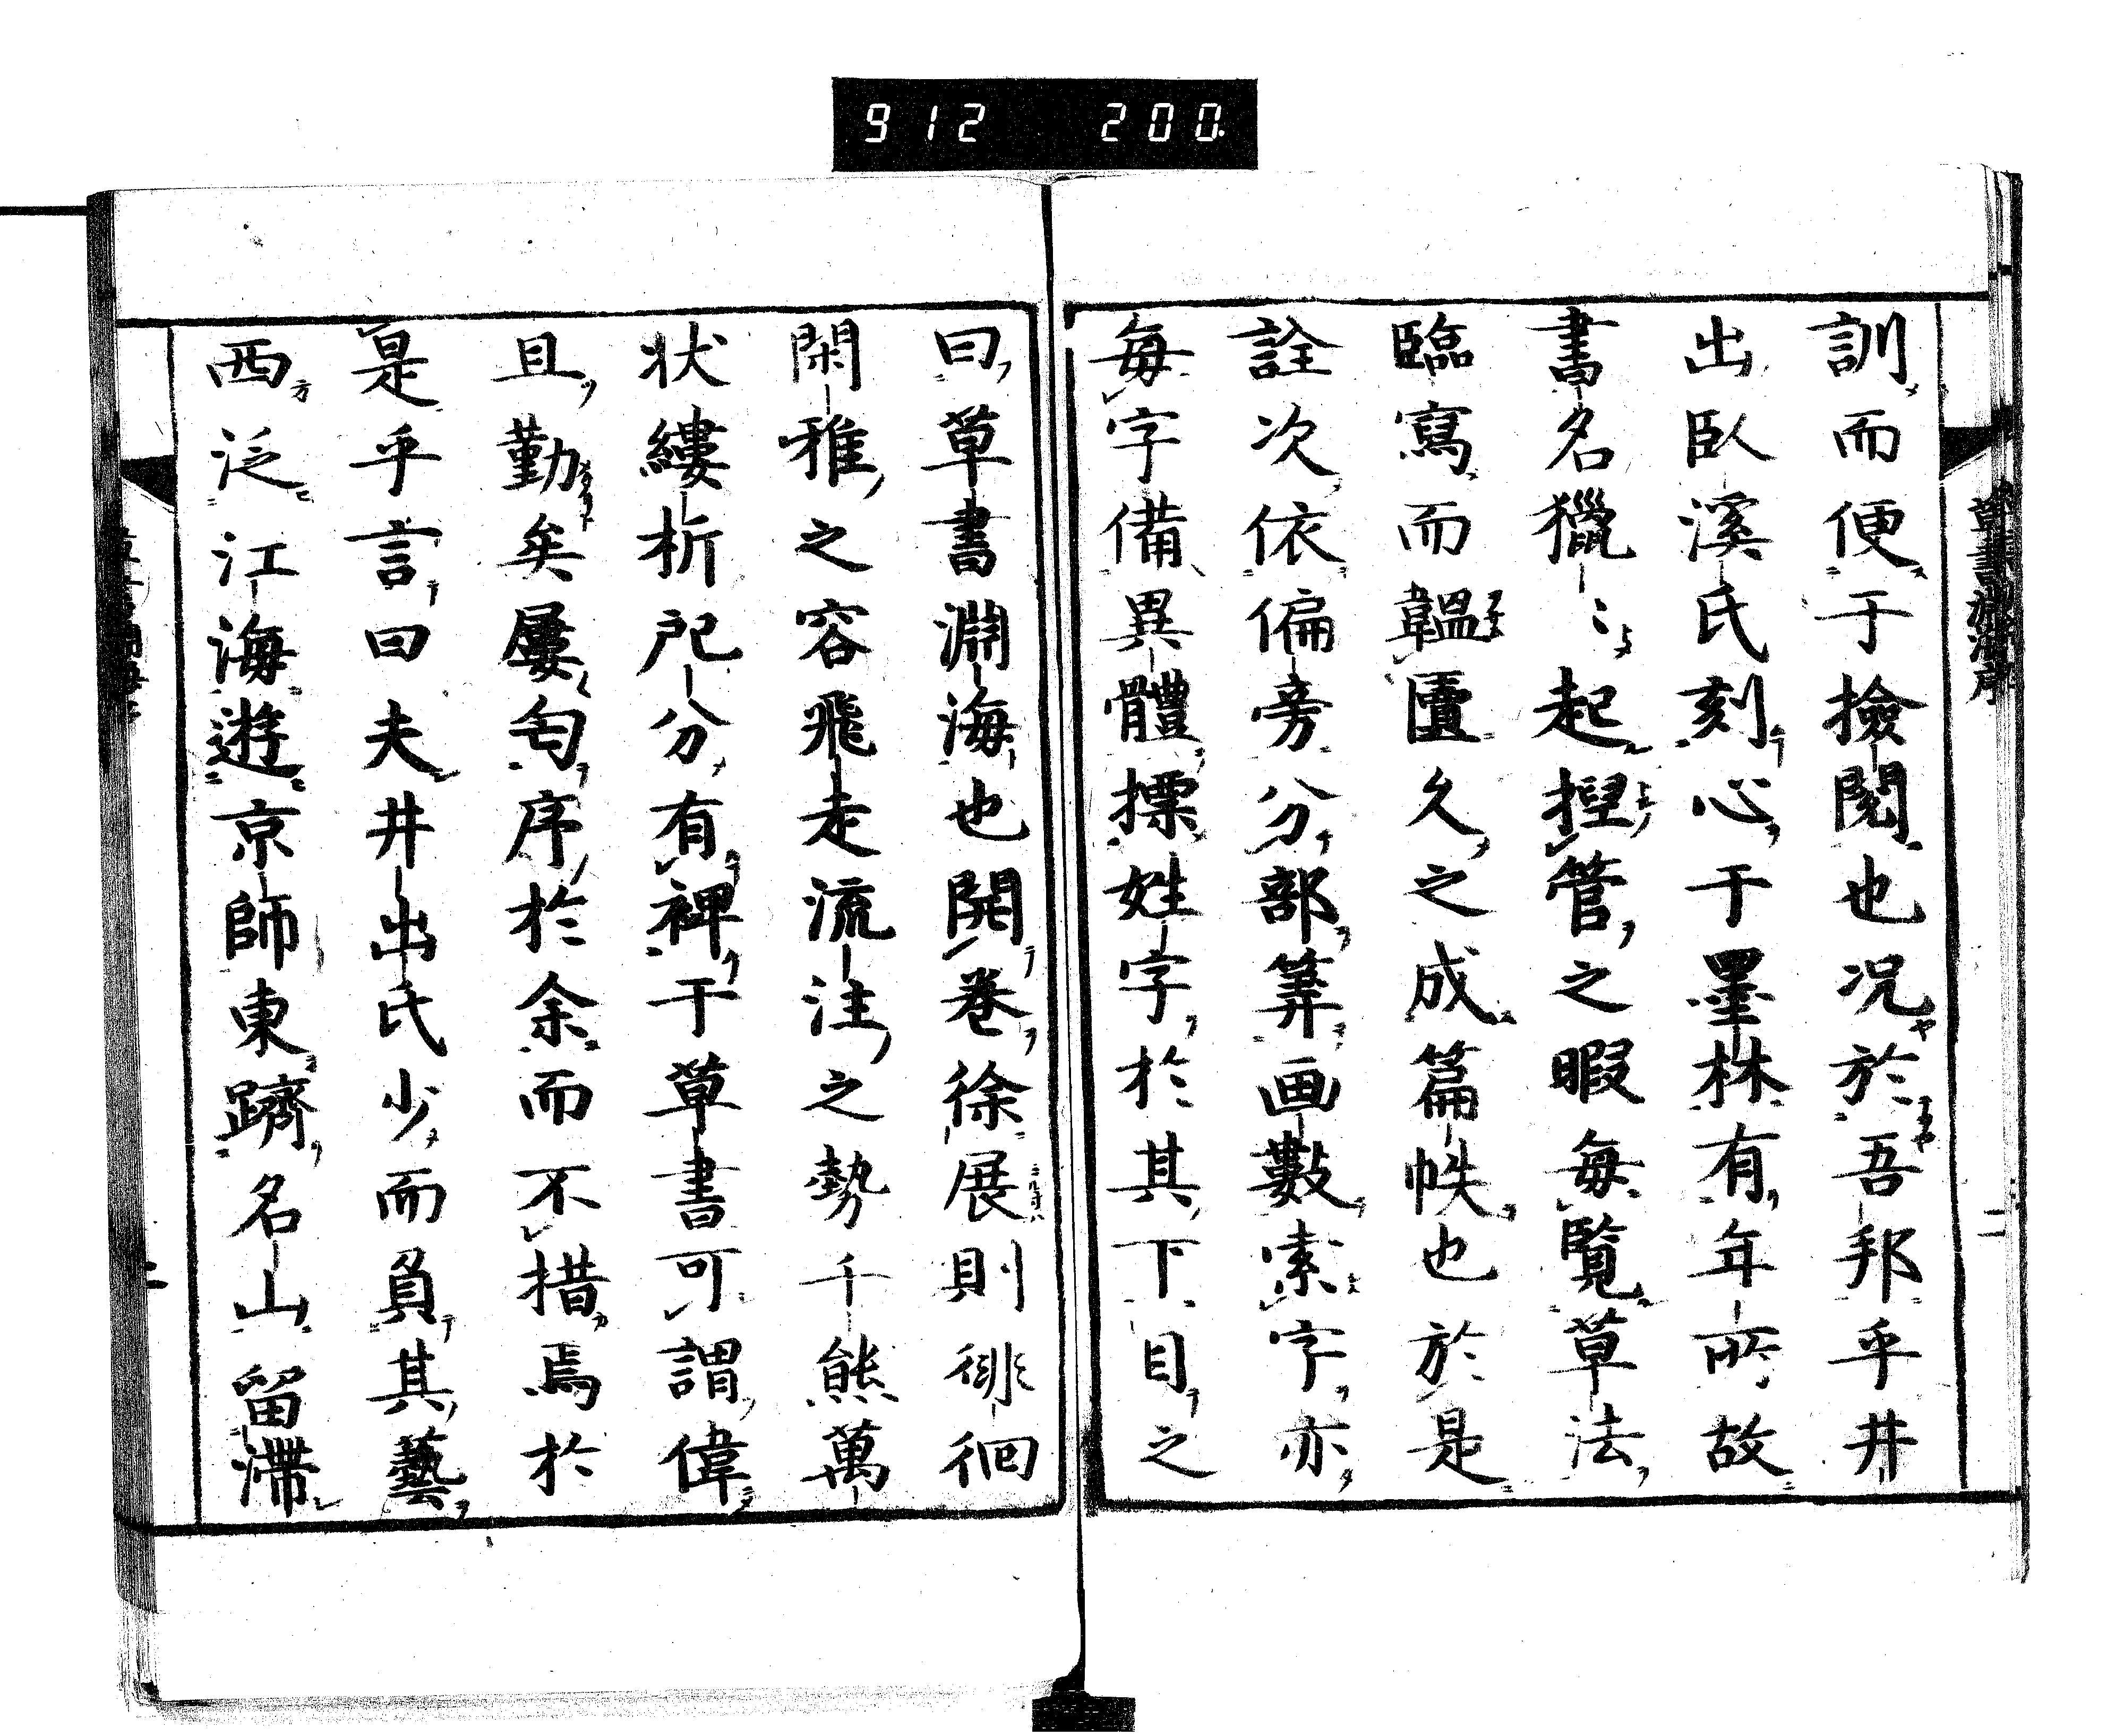 912 200.
草書淵海序
二
訓而便于撿閱也况於吾邦乎井
出臥溪氏刻心于墨林有年所故
書名獵〻起揑管之暇每覧草法
臨寫而韞匵久之成篇帙也於是
詮次依偏旁分部筭画數索字亦
每字備異體摽姓字於其下目之
曰草書淵海也開巻徐展則徘徊
閑雅之容飛走流注之勢千熊萬
状縷析戺分有裨于草書可謂偉
且勤矣屢匄序於余而不措焉於
是乎言曰夫井出氏少而負其藝
西泛江海遊京師東躋名山留滯